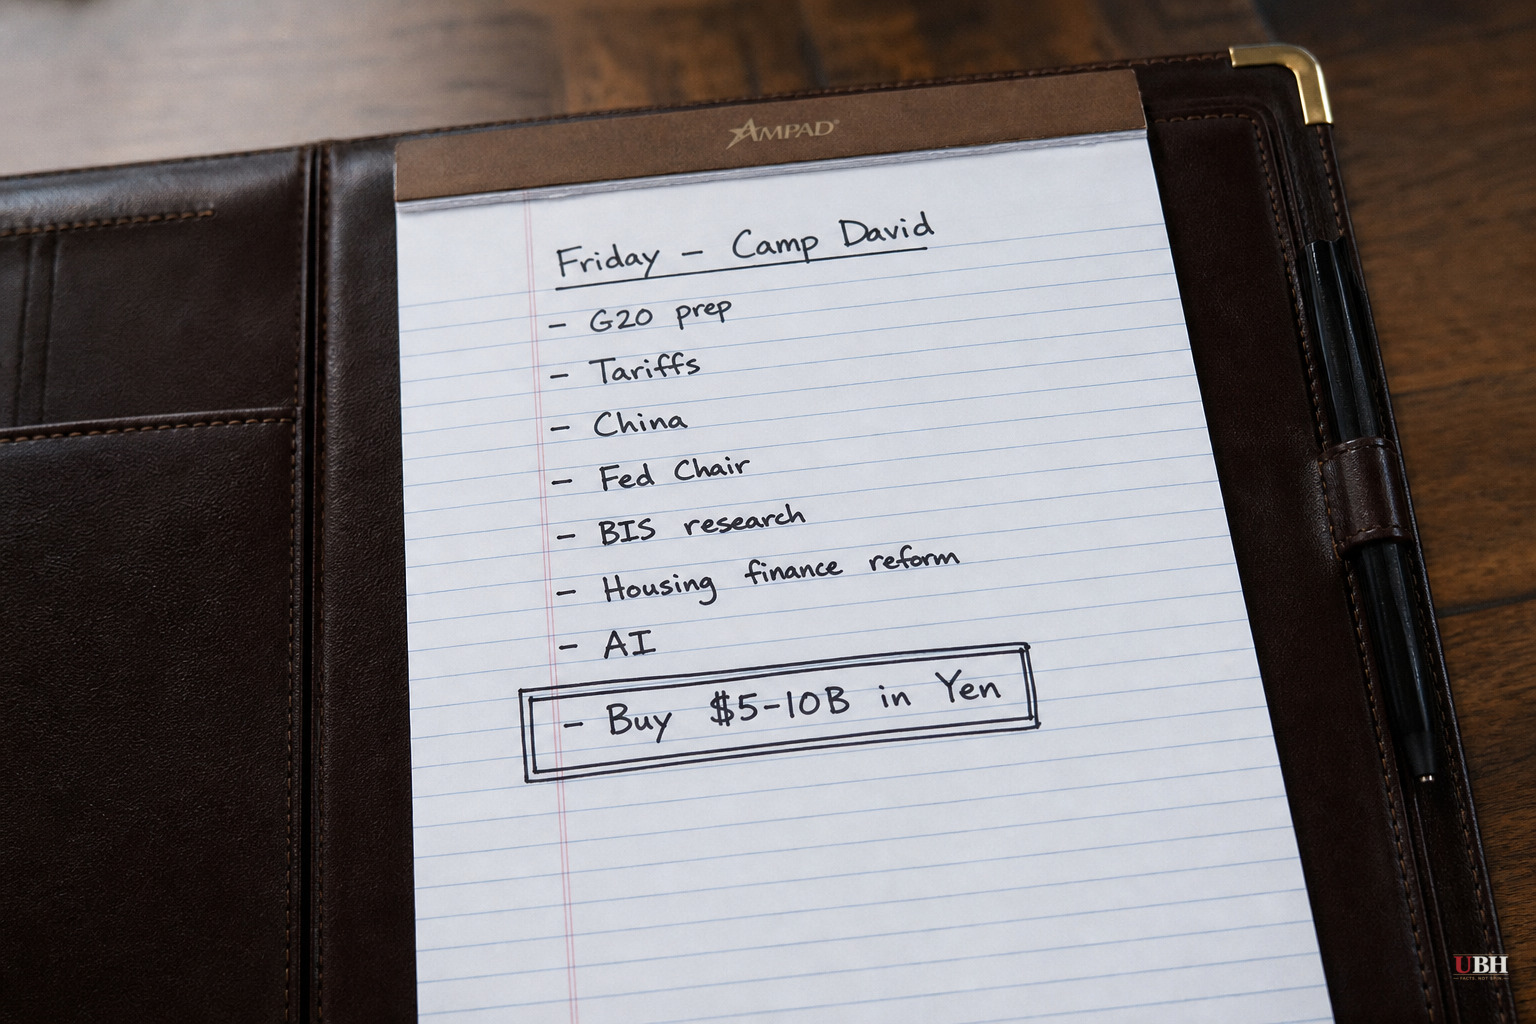 AMPAD®
Friday – Camp David
– G20 prep
– Tariffs
– China
– Fed Chair
– BIS research
– Housing finance reform
– AI
– Buy $5-10B in Yen
UBH
FACTS. NOT SPIN.